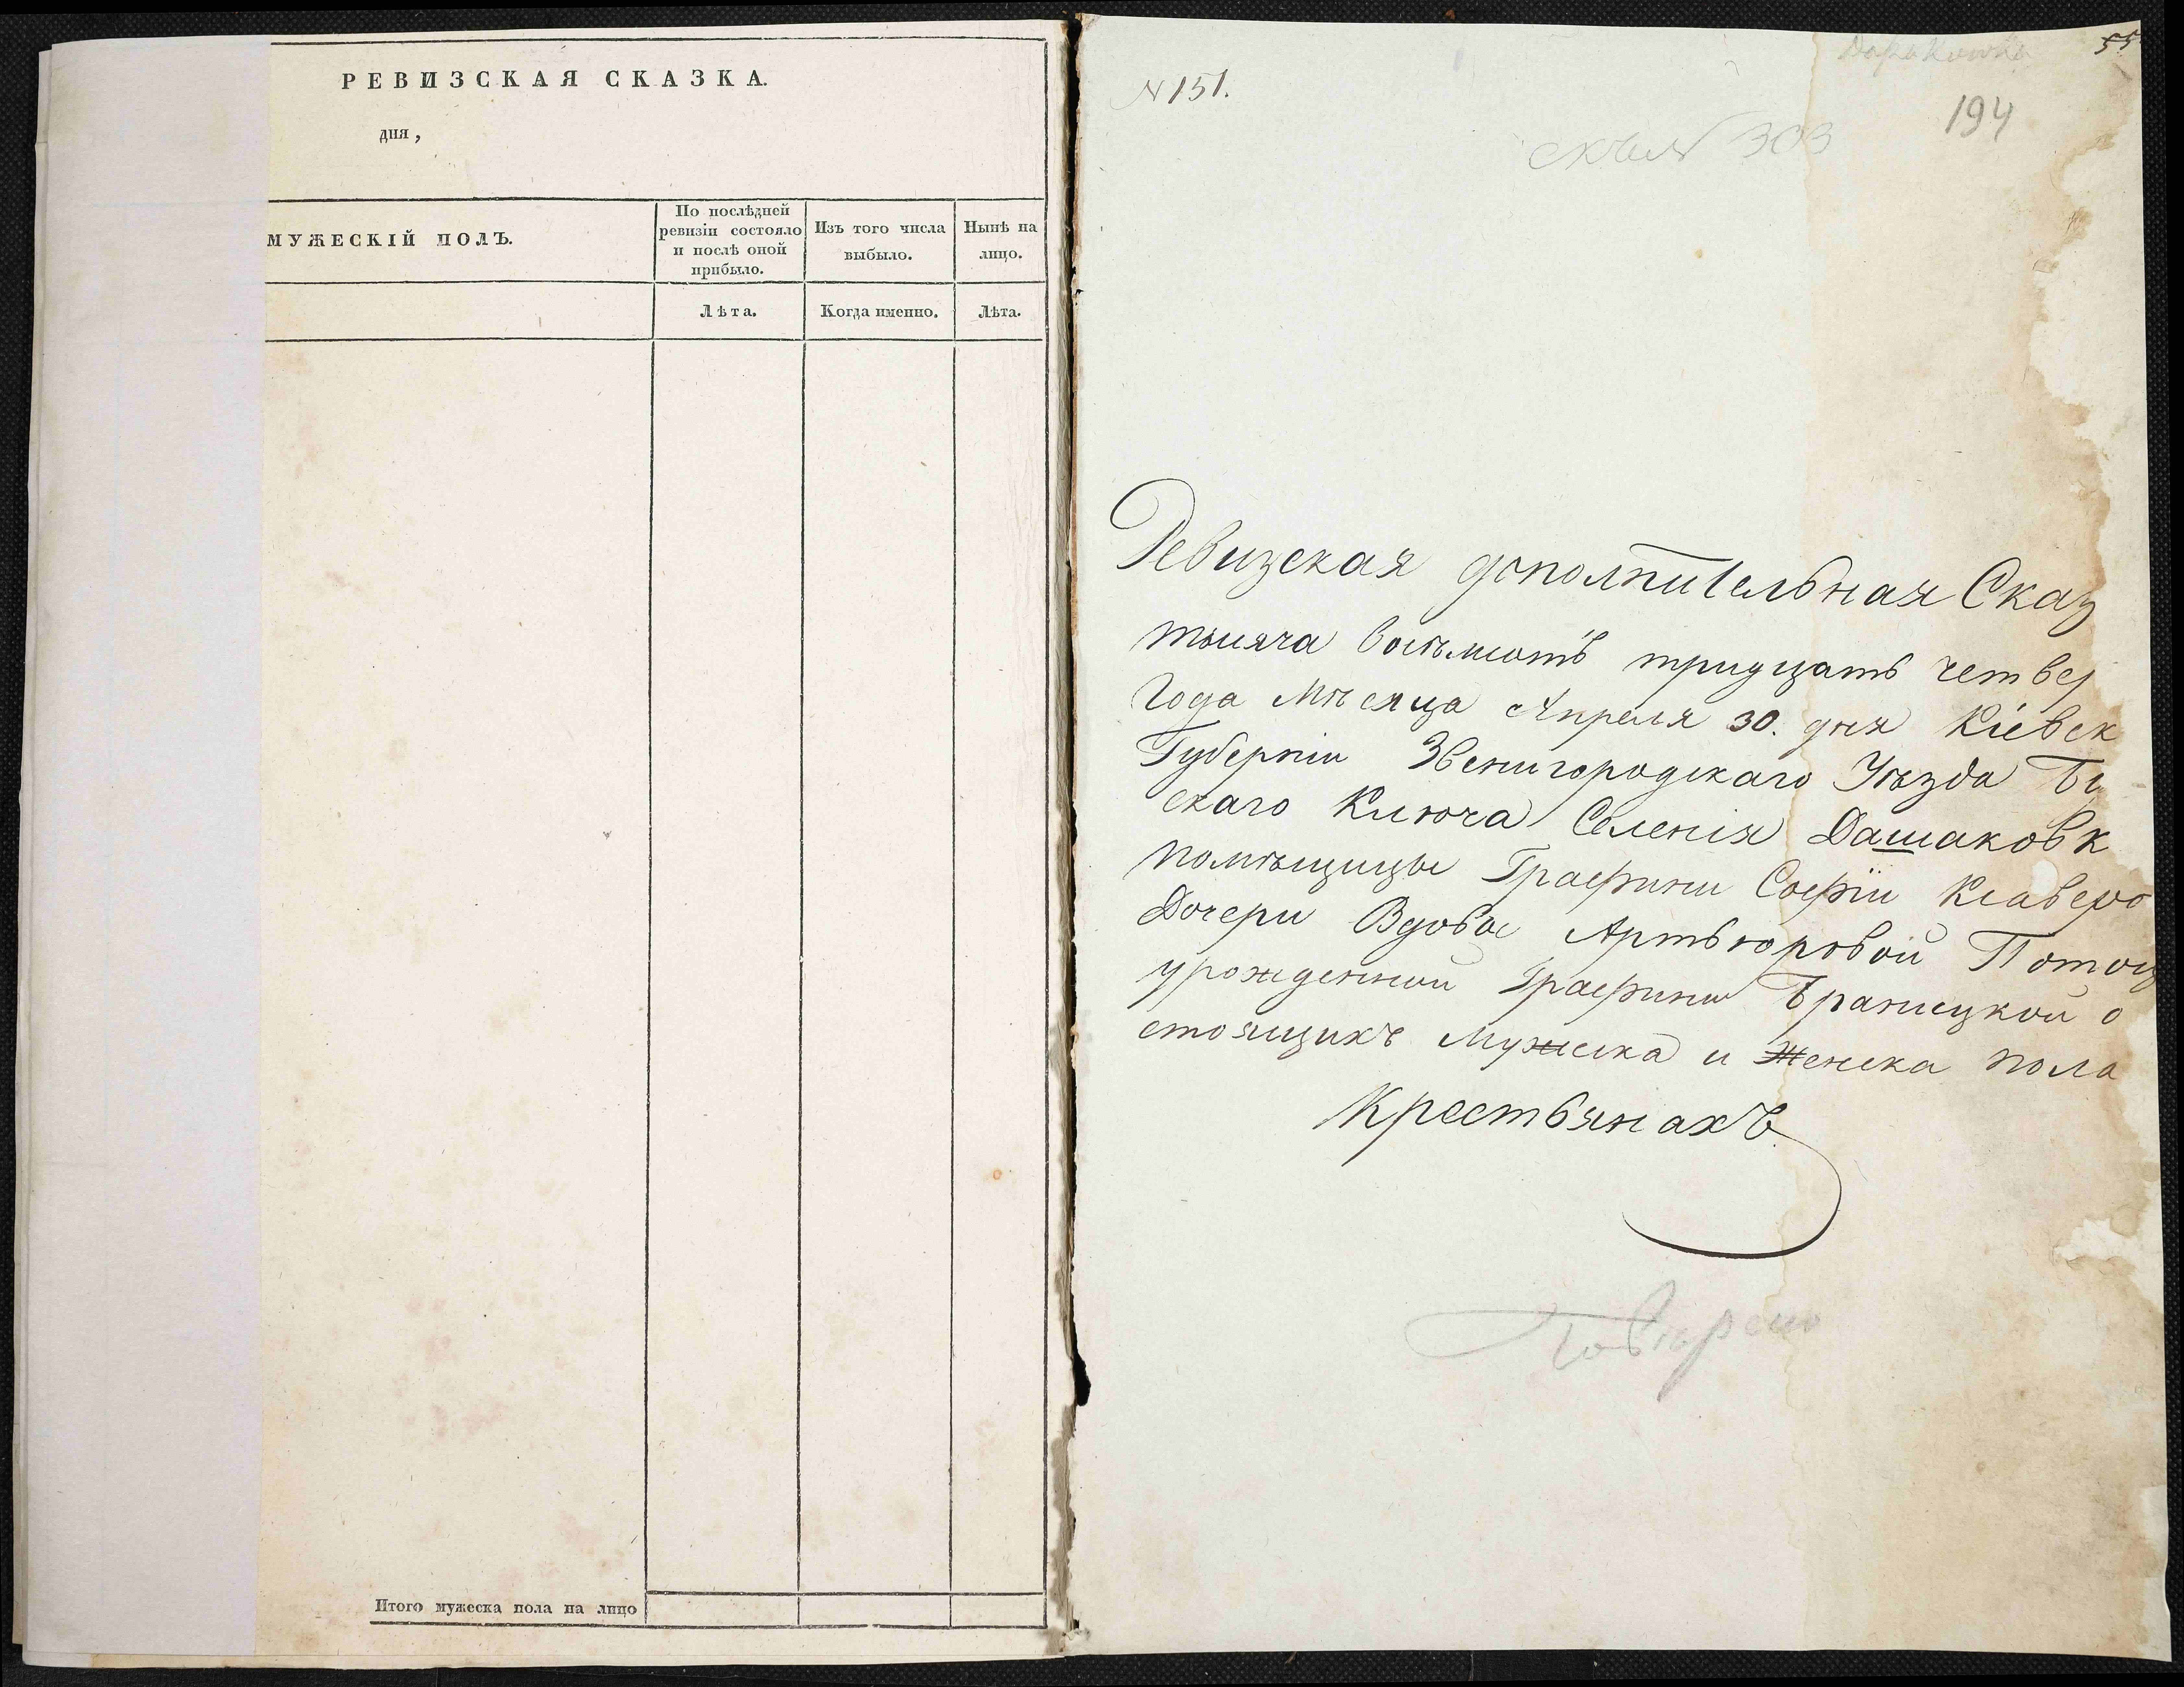 РЕВИЗСКАЯ СКАЗКА.
дня,
МУЖЕСКІЙ ПОЛЪ.
По послѣдней ревизіи состояло и послѣ оной прибыло.
Изъ того числа выбыло.
Нынѣ на лицо.
Лѣта.
Когда именно.
Лѣта.
Итого мужеска пола на лицо
55
N 151.
194
303
Ревизская дополнительная Сказ
тысяча восѣмсотъ тридцать четвер
Года Мѣсяца Апреля 30. дня Кіевск
Губерніи Звенигородскаго Уѣзда
скаго Ключа Селенія Дашаковк
помѣщицы Графини Софіи Ксаверо
Дочери Вдовы Артьюровой Потоц
урожденной Графини Браницкой о
стоящихъ Мужеска и Женска пола
Крестьянахъ.